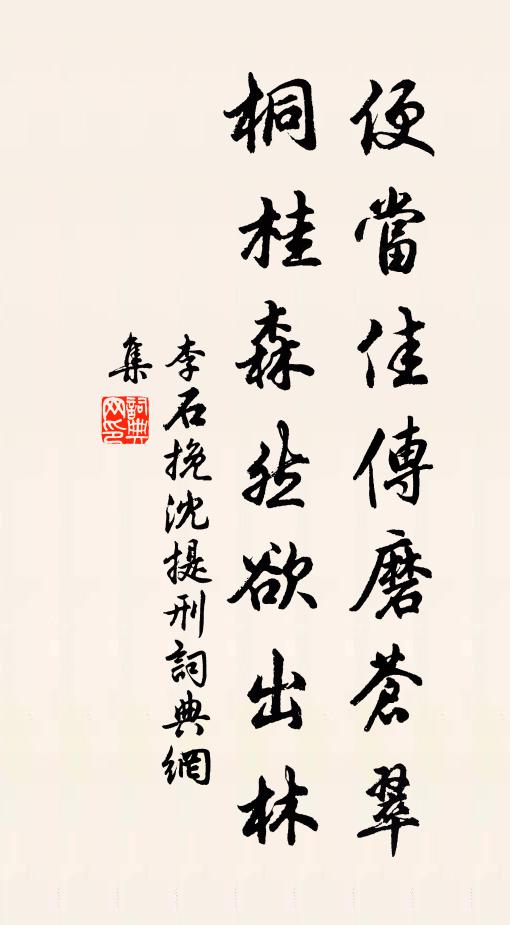 便當佳傳磨蒼翠
桐桂森然欲出林
李石挽沈提刑詞典網
集
詞典網印